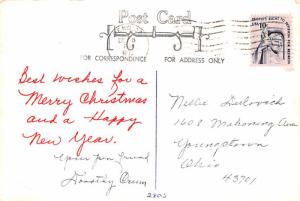 Post Card
FOR CORRESPONDENCE
FOR ADDRESS ONLY
Best wishes for a
Merry Christmas
and a Happy
New Year.
Your pen friend
Dorothy
Nellie
1608 Mahoning Ave
Youngstown
Ohio
43701
2805